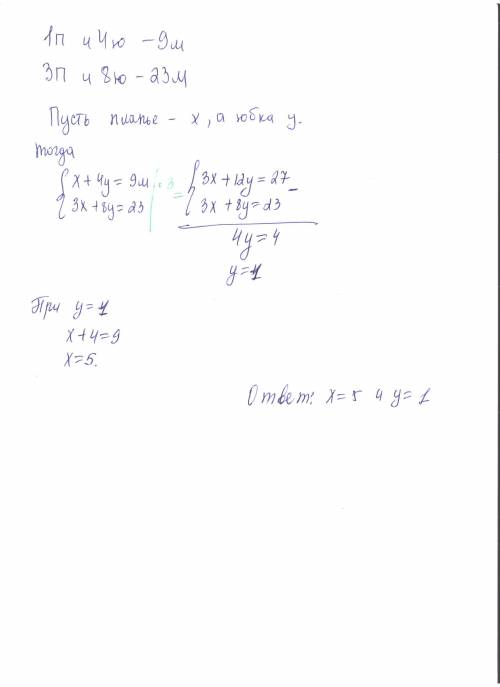 1п и 4ю - 9м
3п и 8ю - 23м
Пусть платье - x, а юбка y.
тогда
{ x + 4y = 9м | · 3 = { 3x + 12y = 27 -
{ 3x + 8y = 23 | { 3x + 8y = 23
4y = 4
y = 1
При y = 1
x + 4 = 9
x = 5.
Ответ: x = 5 и y = 1